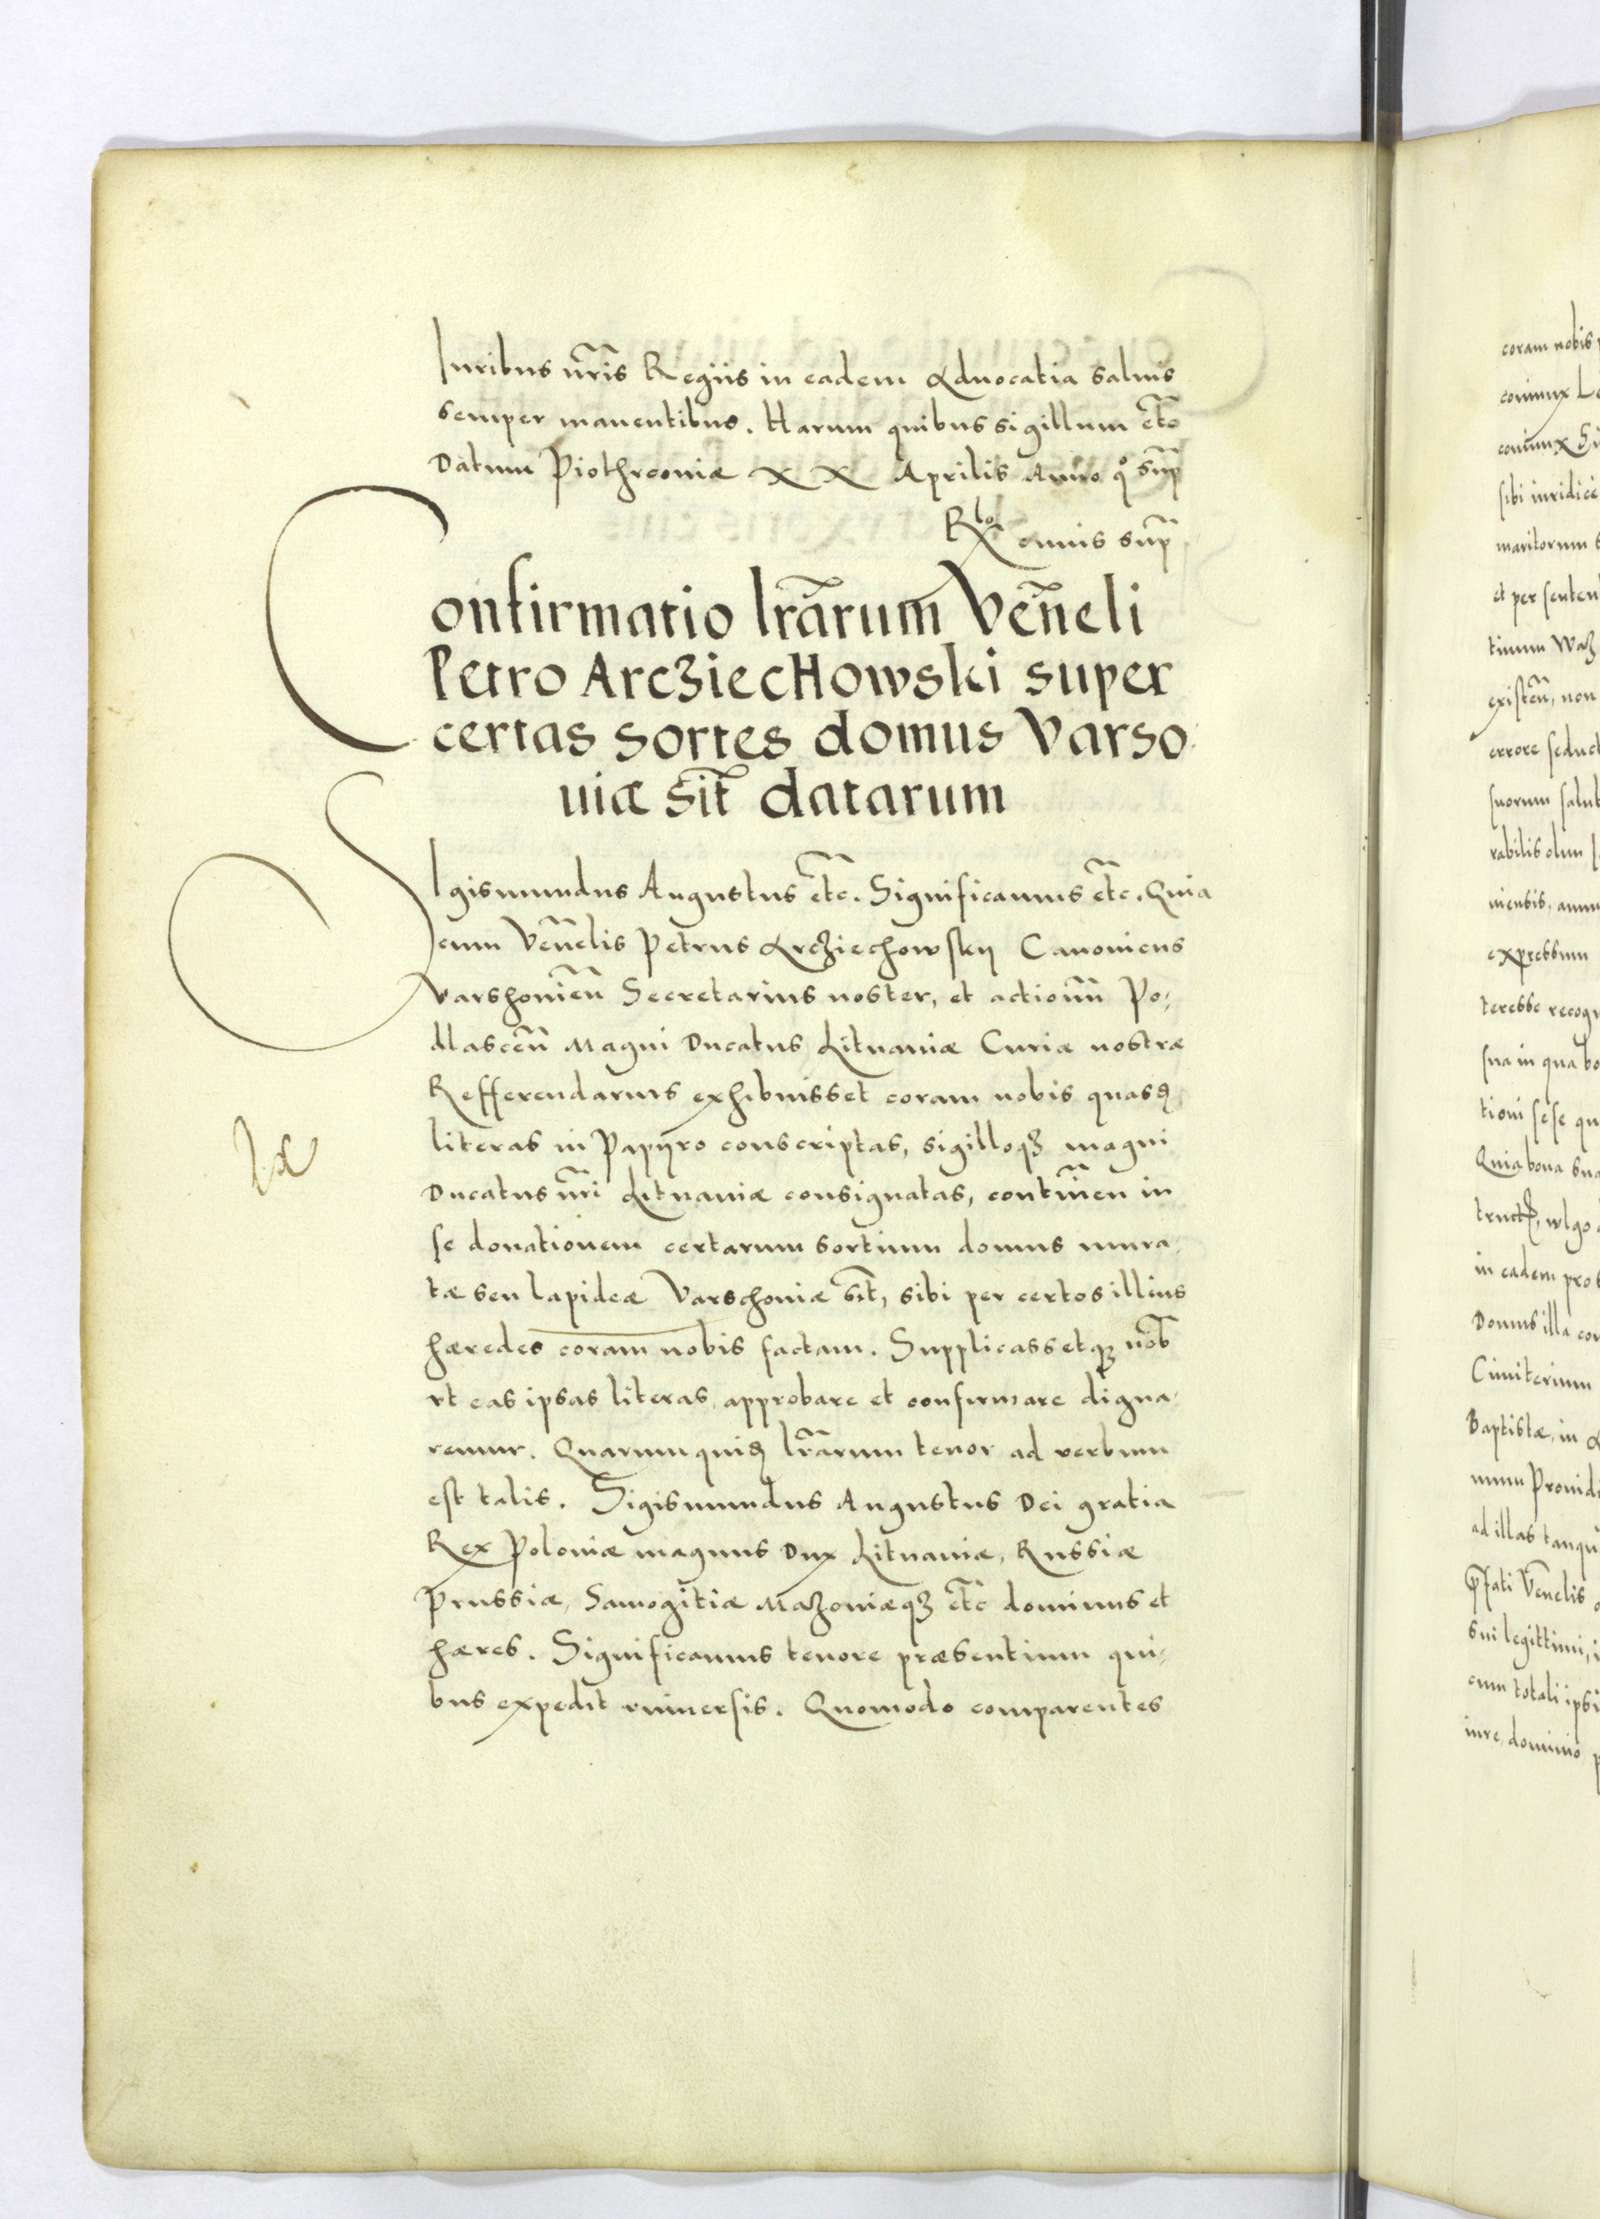 Iuribus nr̃is Regiis in eadem Aduocatia saluis
semper manentibus. Harum quibus sigillum etc̃
Datum Piothrconiæ XX Aprilis Anno qº sup̃
R^lo eiuus sup̃
Confirmatio lr̃arum Ven̄eli
Petro Arcziechowski super
certas sortes domus Varso
uiæ sit̃ datarum
SIgismundus Augustus etc̃. Significamus etc̃. Quia
cum Ven̄elis Petrus Arcziechowskij Canonicus
Varshouien̄ Secretarius noster, et actionū Po,
dlascen̄ Magni Ducatus Lituaniæ Curiæ nostræ
Refferendarius exhibuisset coram nobis quasd
literas in Papyro conscriptas, sigilloqʒ magni
Ducatus nr̃i Lituaniæ consignatas, contineñ in
se donationem certarum sortium domus mura,
tæ seu lapideæ Varschouiæ sit̃, sibi per certos illius
hæredes coram nobis factam. Supplicassetqʒ nob̃
vt eas ipsas literas approbare et confirmare digna,
remur. Quarumquid lr̃arum tenor ad verbum
est talis. Sigismundus Augustus Dei gratia
Rex Poloniæ magnus Dux Lituaniæ, Russiæ
Prussiæ, Samogitiæ Mazouiæqʒ etc̃ dominus et
hæres. Significamus tenore præsentium qui,
bus expedit vniuersis. Quomodo comparentes
coram nobis
coniunx
coniunx
sibi iuridice
maritorum
et per senten
tinum
existen̄, non
errore seduct
suorum salub
rabilis olim
uiensis,
expressum
teresse recog
sua in qua bo
tioni sese qu
Quia bona sua
wlgo
in eadem pro
Domus illa co
Cimiterium
Baptistæ, in
mum Prouid
ad illas tanqu
p̃fati Ven̄elis
sui legittimi, i
cum totali ipsi
iure, dominio